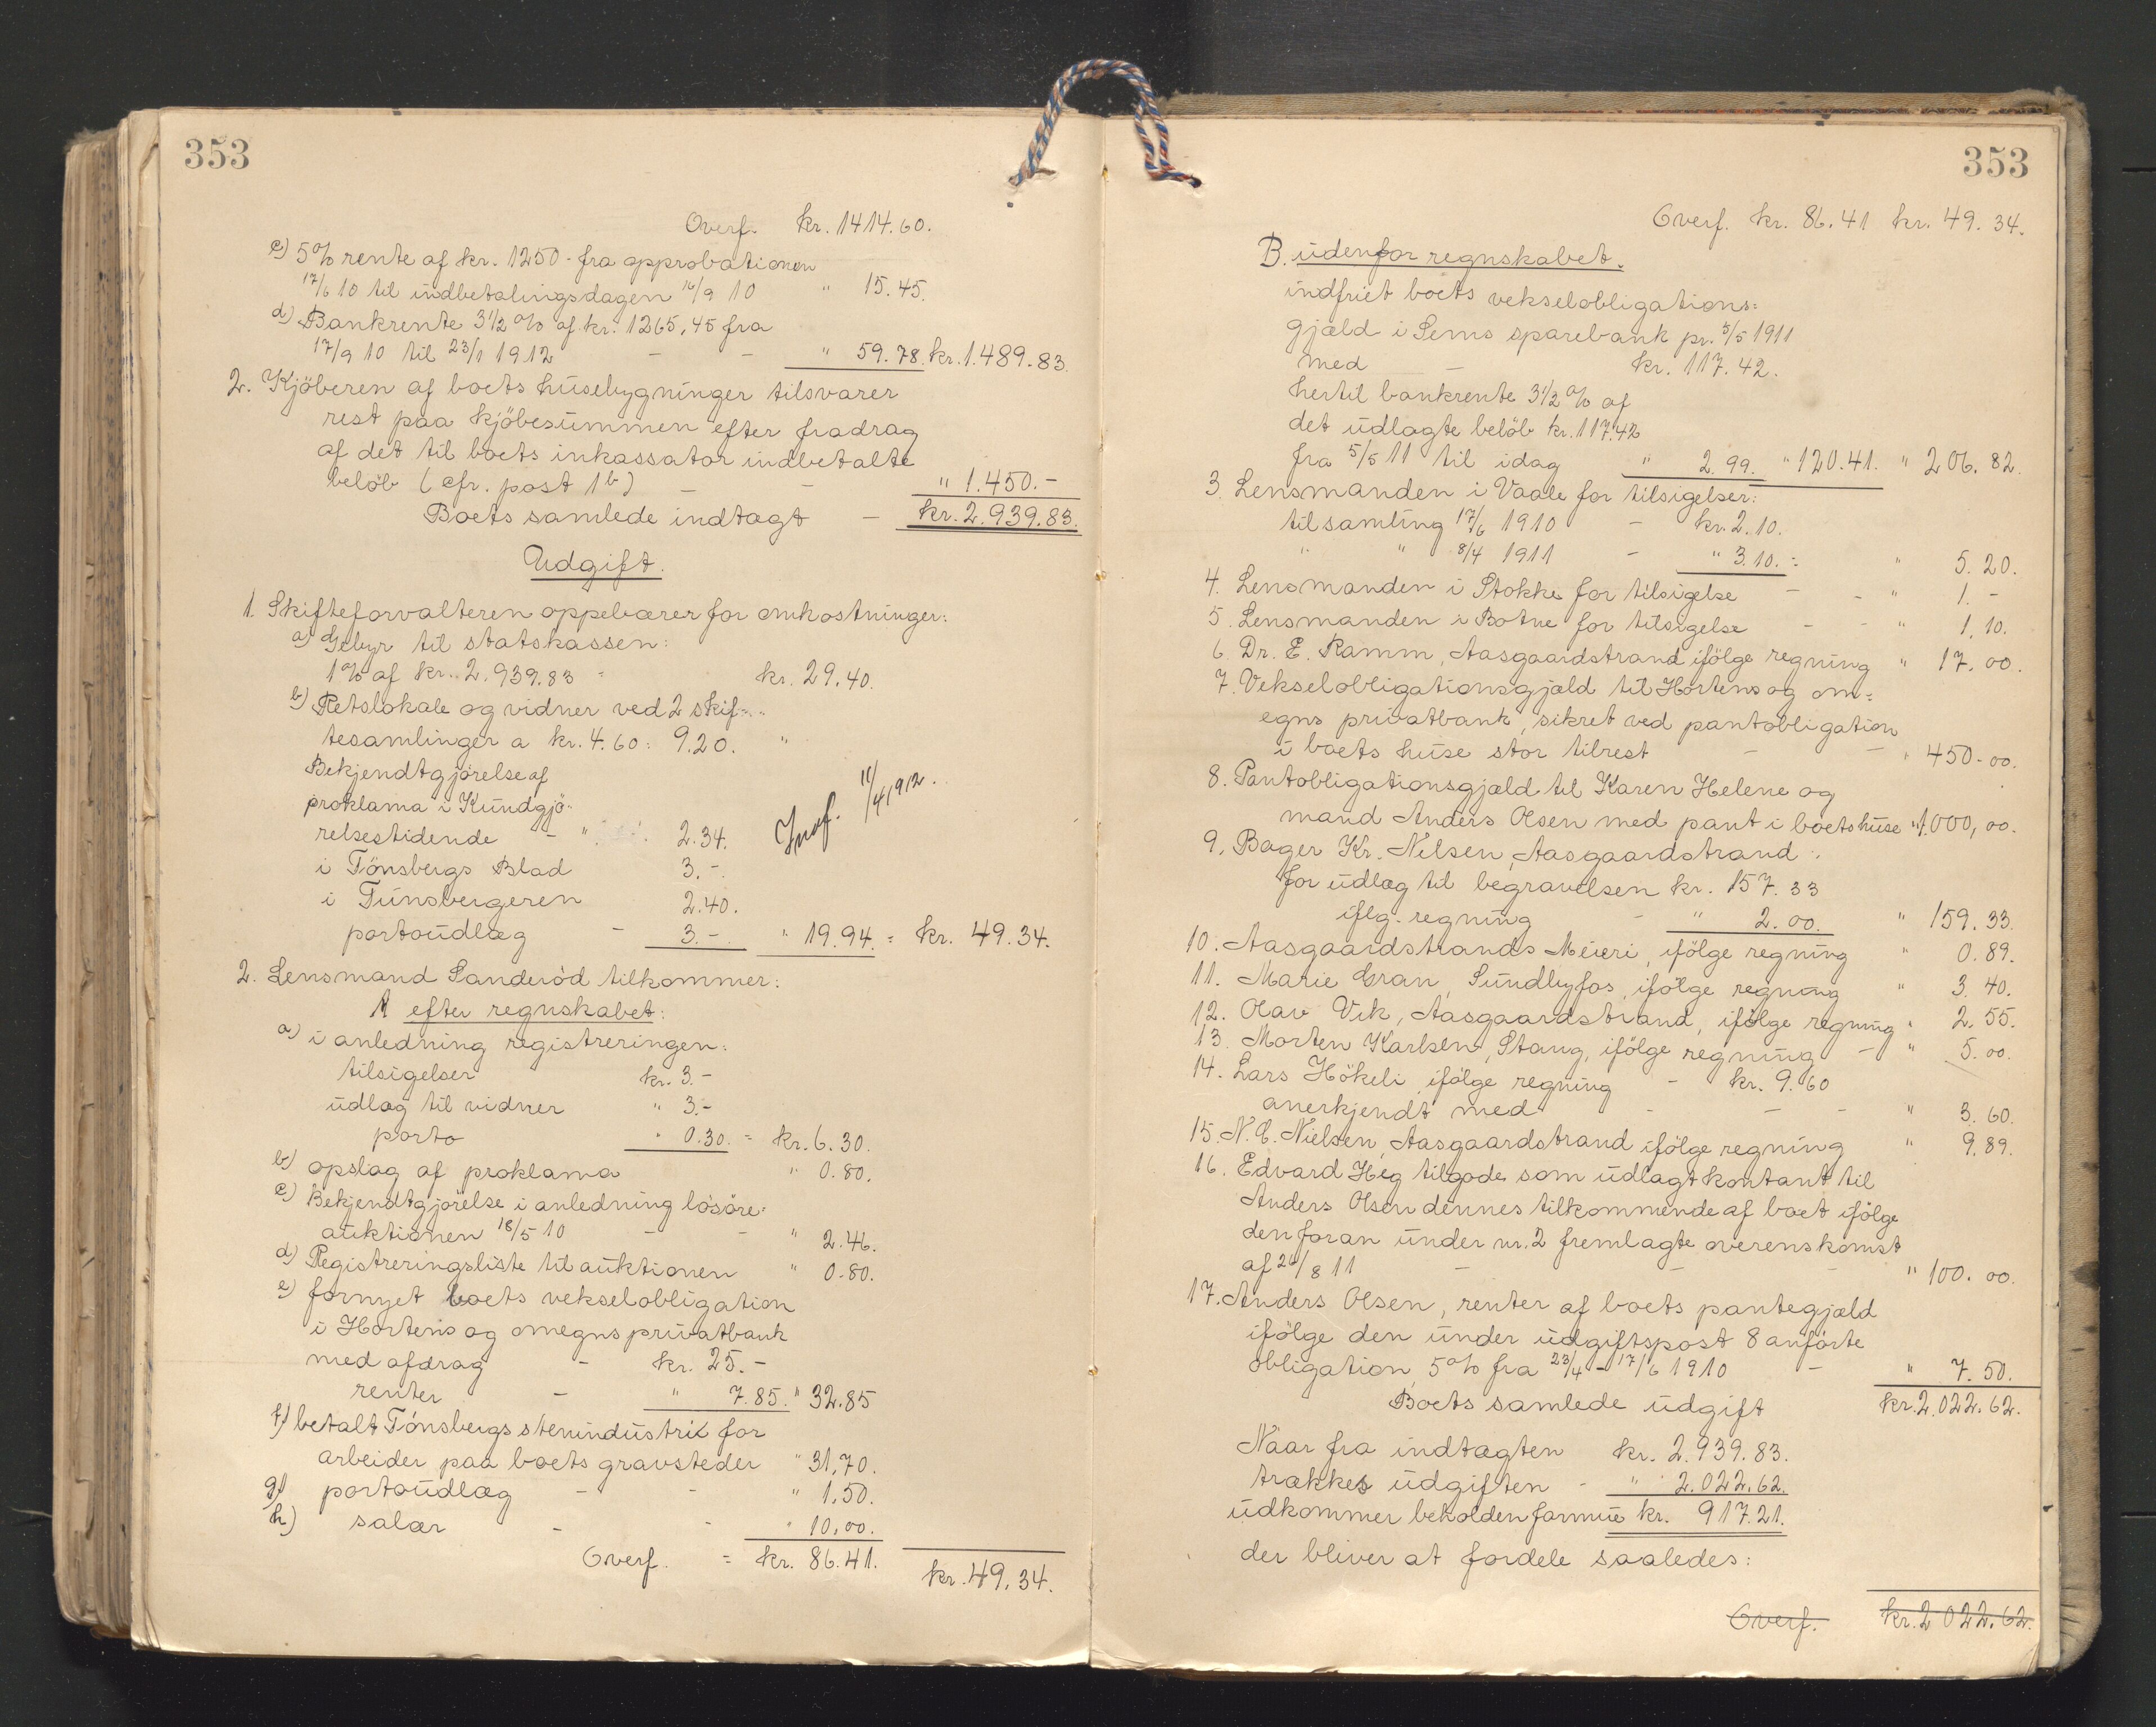 353
Overf. kr. 1414.60.
c) 5% rente af kr. 1250 - fra approbationen
17/6 10 til indbetalingsdagen 16/9 10 " 15.45.
d) Bankrente 3 1/2 % af kr. 1265,45 fra
17/9 10 til 23/1 1912 - - " 59.78. kr. 1.489.83.
2. Kjöberen af boets husebygninger tilsvarer
rest paa kjöbesummen efter fradrag
af det til boets inkassator indbetalte
belöb (cfr. post 1b) - - " 1.450.-
Boets samlede indtægt - kr. 2.939.83.
Udgift.
1. Skifteforvalteren oppebærer for omkostninger:
a) Gebyr til statskassen:
1% af kr. 2.939.83 - kr. 29.40.
b) Retslokale og vidner ved 2 skif-
tesamlinger a kr. 4.60: 9.20. "
Bekjendtgjörelse af
proklama i Kundgjö-
relsestidende - " 2.34.
i Tönsbergs Blad 3.-
i Tunsbergeren 2.40.
portoudlæg - 3.- " 19.94. = kr. 49.34.
11/4 1912.
2. Lensmand Sanderöd tilkommer:
A efter regnskabet:
a) i anledning registreringen:
tilsigelser kr. 3.-
udlæg til vidner " 3.-
porto " 0.30. = kr. 6.30.
b) opslag af proklama " 0.80.
c) Bekjendtgjörelse i anledning lösöre-
auktionen 18/5 10 - - " 2.46.
d) Registreringsliste til auktionen " 0.80.
e) fornyet boets vekselobligation
i Hortens og omegns privatbank
med afdrag - kr. 25.-
renter - " 7.85. " 32.85
f) betalt Tönsbergs stenindustri for
arbeider paa boets gravsteder " 31,70.
g) portoudlæg - - " 1,50.
h) salær - - " 10,00.
Overf. = kr. 86.41. kr. 49,34.
353
Overf. kr. 86.41 kr. 49.34.
B. udenfor regnskabet.
indfriet boets vekselobligations-
gjæld i Sems sparebank pr. 5/5 1911
med - kr. 117.42.
hertil bankrente 3 1/2 % af
det udlagte belöb kr. 117.42
fra 5/5 11 til idag " 2.99. " 120.41. " 206.82.
3. Lensmanden i Vaale for tilsigelser:
til samling 17/6 1910 - kr. 2.10.
" " 8/4 1911 - " 3.10. = " 5.20.
4. Lensmanden i Stokke for tilsigelse - - " 1.-
5. Lensmanden i Botne for tilsigelse - - " 1,10.
6. Dr. E. Ramm, Aasgaardstrand ifölge regning " 17.00.
7. Vekselobligationsgjæld til Hortens og om-
egns privatbank, sikret ved pantobligation
i boets huse stor tilrest - - " 450-00.
8. Pantobligationsgjæld til Karen Helene og
mand Anders Olsen med pant i boets huse " 1.000,00.
9. Bager Kr. Nilsen, Aasgaardstrand:
for udlæg til begravelsen kr. 157.33
iflg. regning - " 2.00. " 159.33.
10. Aasgaardstrands Meieri, ifölge regning " 0.89.
11. Marie Gran, Sundbyfos, ifölge regning " 3.40.
12. Olav Vik, Aasgaardstrand, ifölge regning " 2.55.
13. Morten Karlsen, Stang, ifölge regning - " 5.00.
14. Lars Hökeli ifölge regning - kr. 9.60
anerkjendt med - - - " 3.60.
15. N. C. Nielsen, Aasgaardstrand ifölge regning " 9.89.
16. Edvard Heg tilgode som udlagt kontant til
Anders Olsen dennes tilkommende af boet ifölge
den foran under nr. 2 fremlagte overenskomst
af 26/8 11 - - - " 100.00.
17. Anders Olsen, renter af boets pantegjæld
ifölge den under udgiftspost 8 anförte
obligation, 5% fra 23/4 - 17/6 1910 - " 7.50.
Boets samlede udgift kr. 2.022.62.
Naar fra indtægten kr. 2.939.83.
trækkes udgiften - " 2.022.62.
udkommer beholden formue kr. 917.21.
der bliver at fordele saaledes:
Overf. kr. 2022.62.